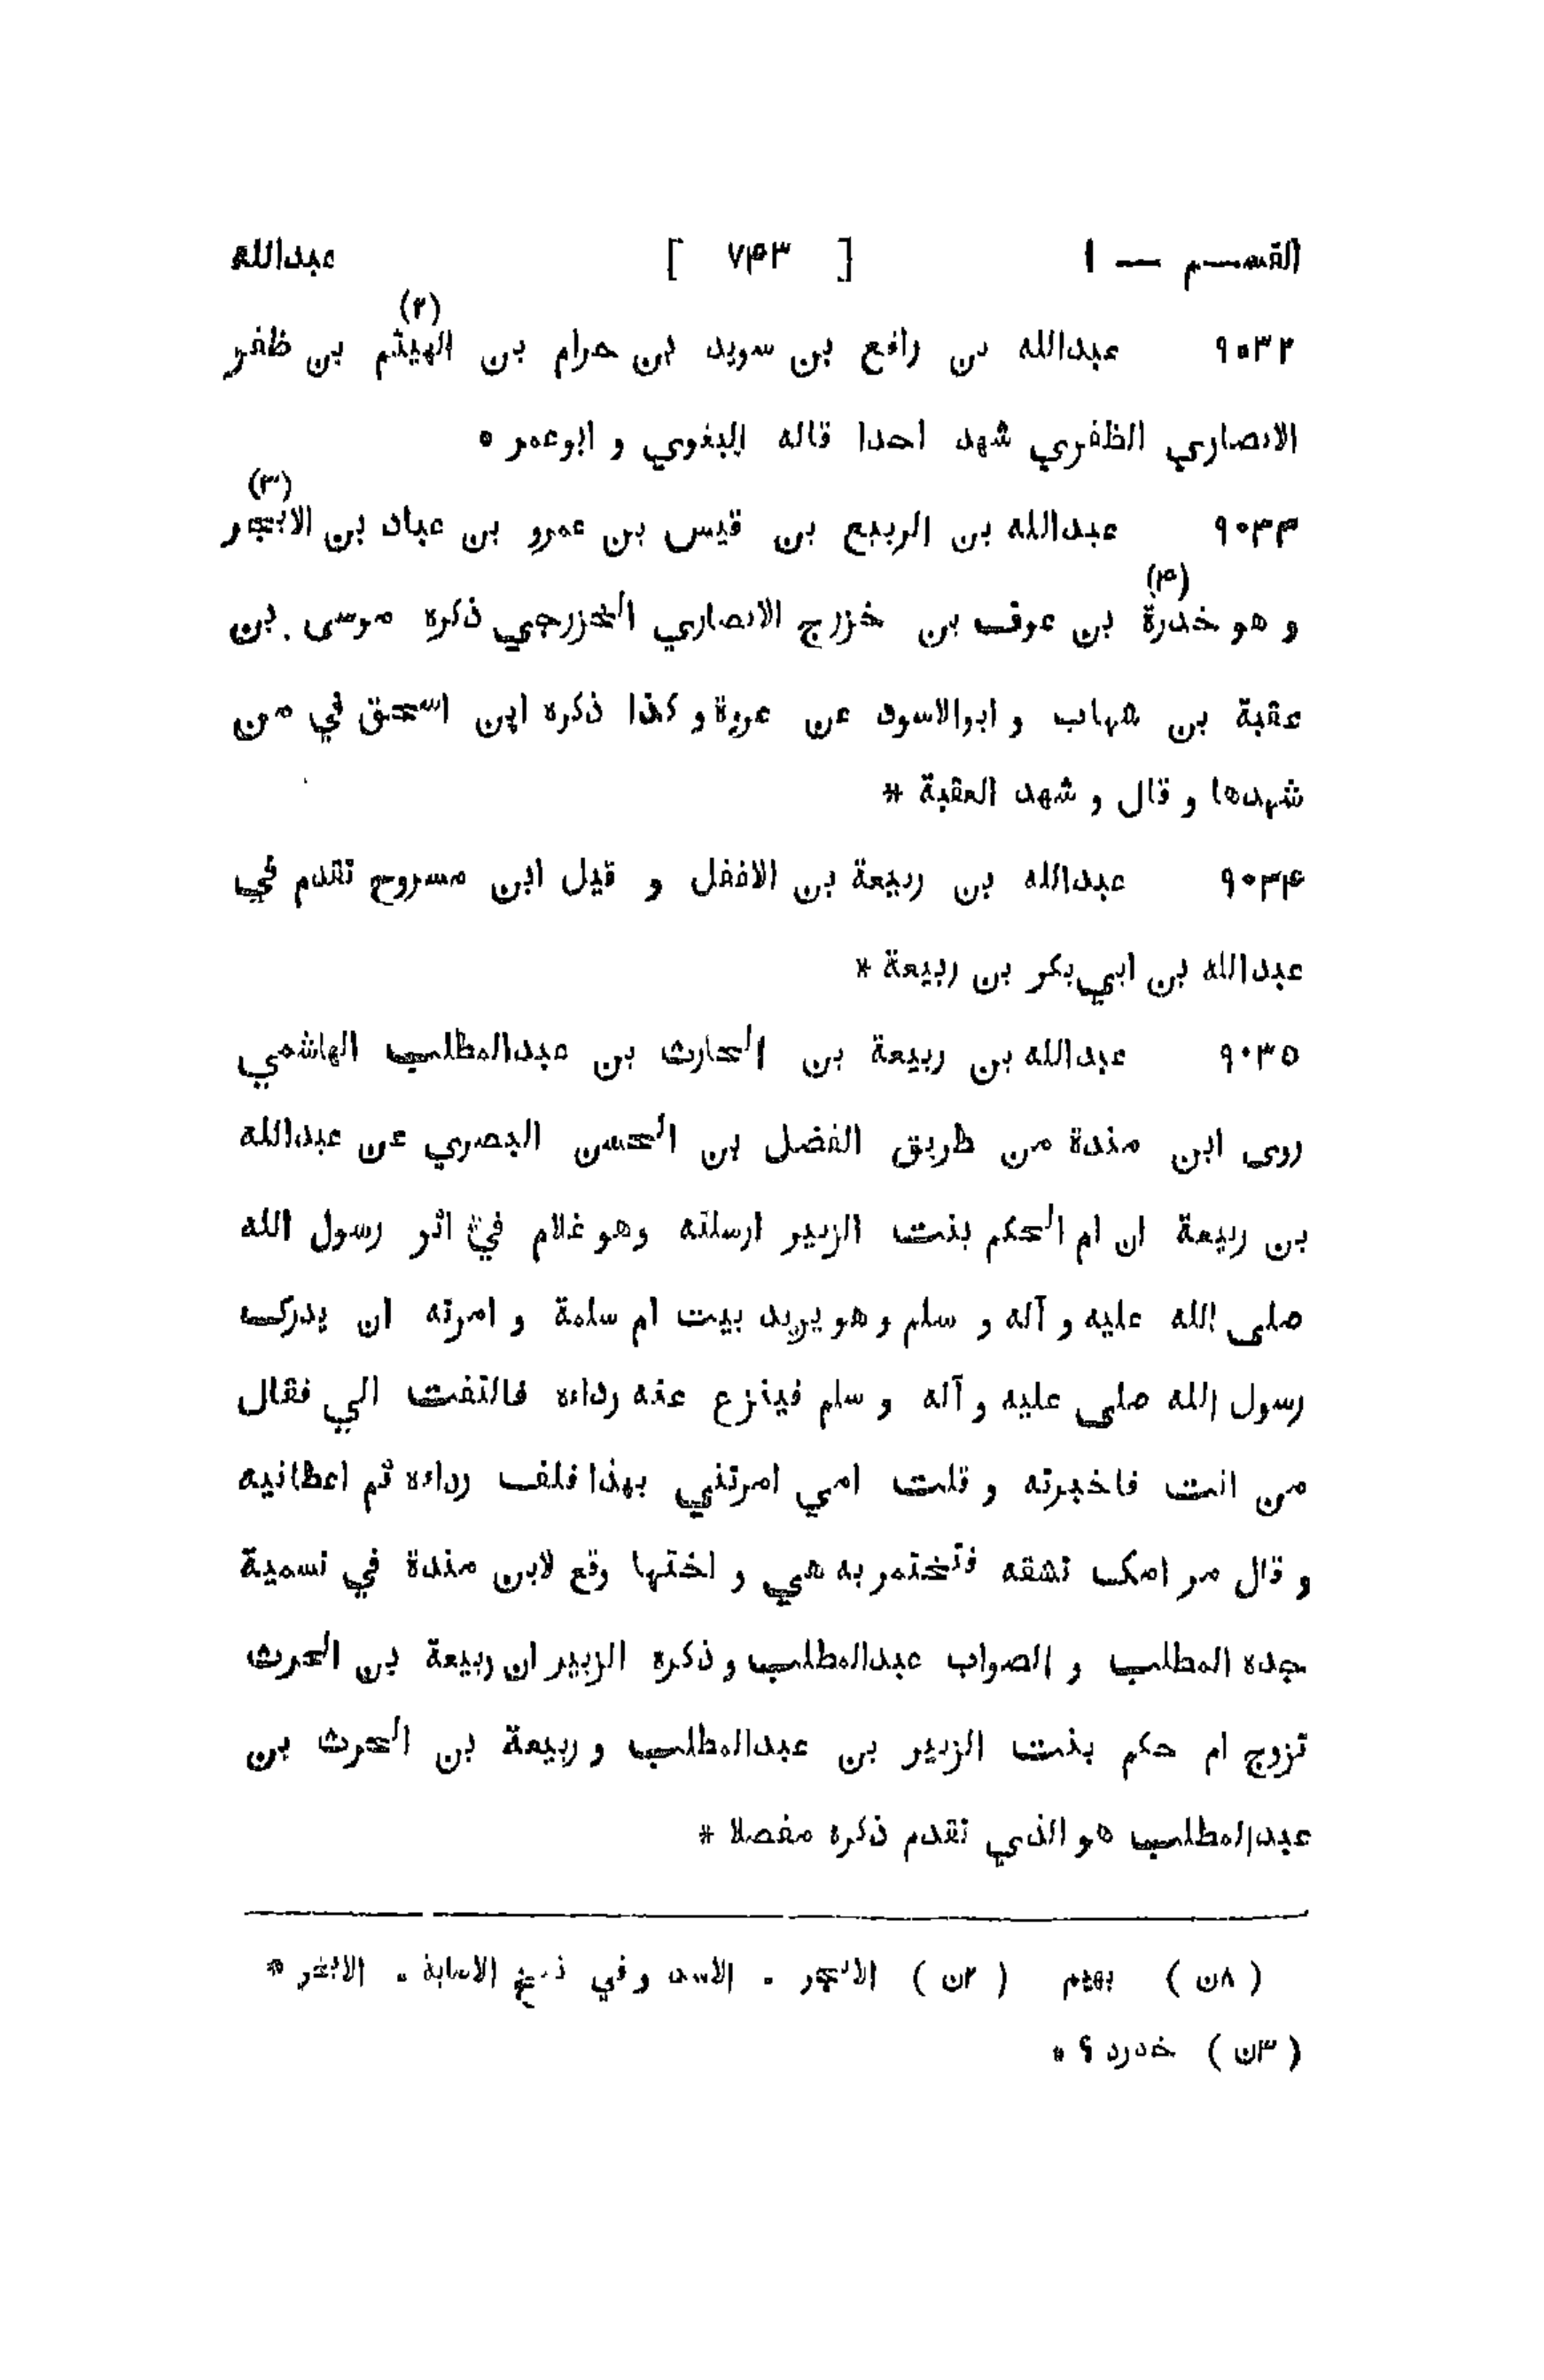 القســم — ١ [ ٧۴٣ ] عبدالله
(٢)
٩٠٣٢ عبدالله بن رافع بن سويد بن حرام بن الهيثم بن ظفر
الانصاري الظفري شهد احدا قاله البغوي و ابوعمر *
(٣)
٩٠٣٣ عبدالله بن الربيع بن قيس بن عمرو بن عباد بن الابجر
(۴)
و هو خدرة بن عوف بن خزرج الانصاري الخزرجي ذكره موسى بن
عقبة بن شهاب و ابوالاسود عن عروة و كذا ذكره ابن اسحق في من
شهدها و قال و شهد العقبة *
٩٠٣۴ عبدالله بن ربيعة بن الاغفل و قيل ابن مسروح تقدم في
عبدالله بن ابي بكر بن ربيعة *
٩٠٣٥ عبدالله بن ربيعة بن الحارث بن عبدالمطلب الهاشمي
روى ابن مندة من طريق الفضل بن الحسن البصري عن عبدالله
بن ربيعة ان ام الحكم بنت الزبير ارسلته وهو غلام في اثر رسول الله
صلى الله عليه و آله و سلم و هو يريد بيت ام سلمة و امرته ان يدرك
رسول الله صلى عليه و آله و سلم فينزع عنه رداءه فالتفت الي فقال
من انت فاخبرته و قلت امي امرتني بهذا فلف رداءه ثم اعطانيه
و قال مر امك تشقه فتختمر به هي و اختها وقع لابن مندة في تسمية
جده المطلب و الصواب عبدالمطلب و ذكره الزبير ان ربيعة بن الحرث
تزوج ام حكم بنت الزبير بن عبدالمطلب و ربيعة بن الحرث بن
عبدالمطلب هو الذي تقدم ذكره مفصلا *
( ٨ن ) بهثم ( ٢ن ) الابجر . الاسد و في نسخ الاصابة .
( ٣ن ) خدرد ؟ *